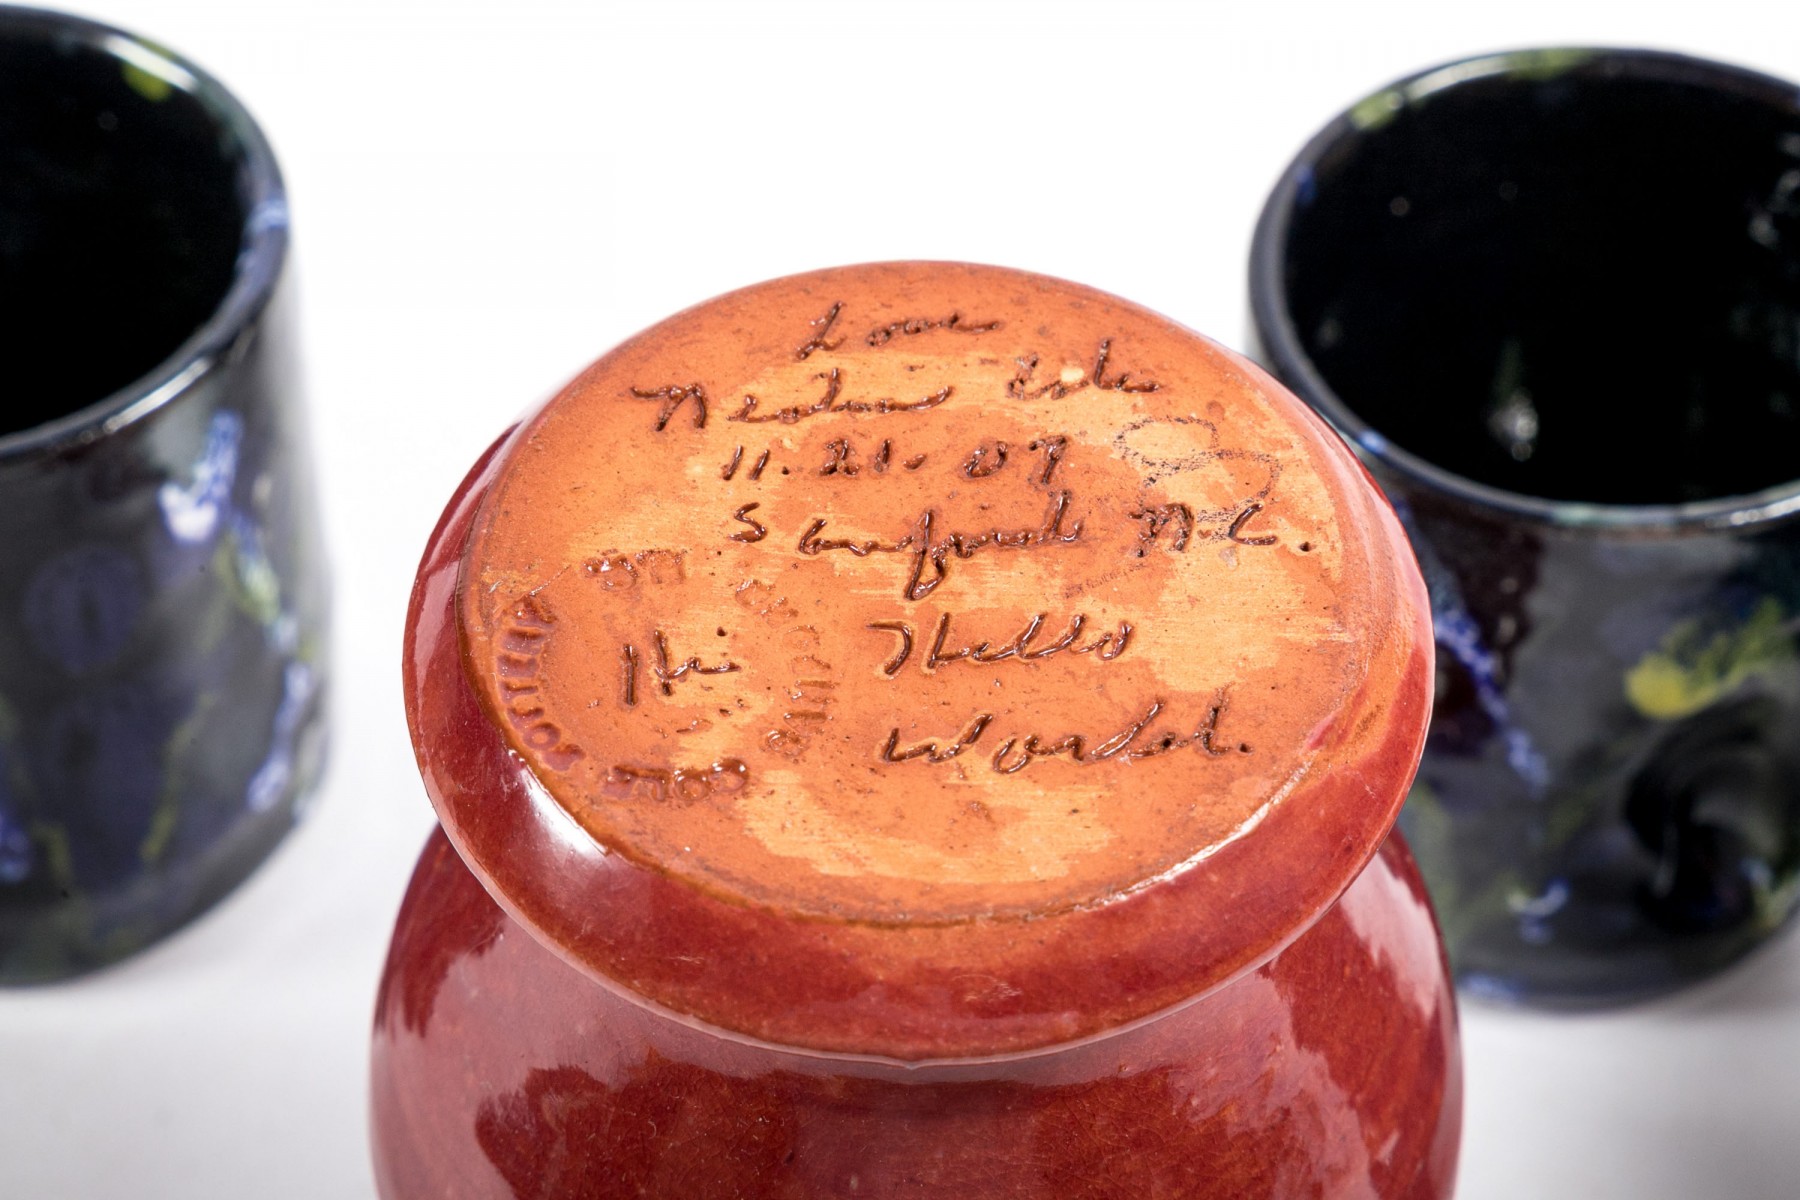 Love
Neolia Cole
11.21.07
Sanford N.C.
Hi Hello
World.
POTTERY
NC
2007